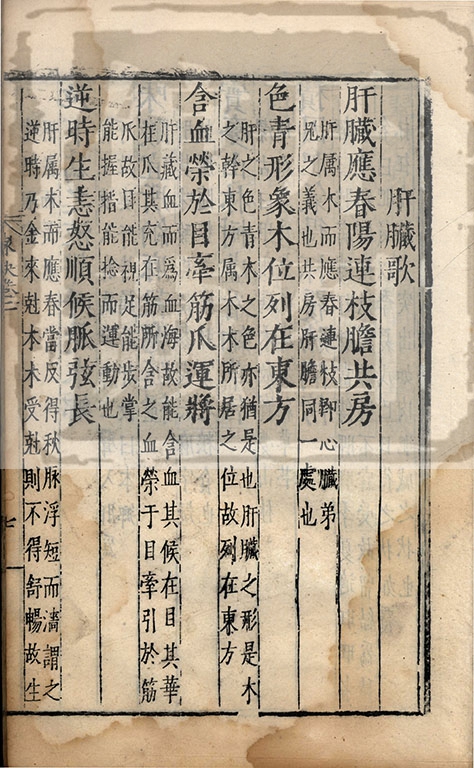 肝臟歌
肝臟應春陽連枝膽共房
肝属木而應春連枝即心臟弟
兄之義也共房肝膽同一處也
色青形象木位列在東方
肝之色青木之色亦猶是也肝臟之形是木
之幹東方属木木所居之位故列在東方
含血榮於目牽筋爪運將
肝藏血而爲血海故能含血其候在目其華
在爪其充在筋所含之血榮于目牽引於筋
爪故目能視足能步掌
能握指能捻而運動也
逆時生恚怒順候脈弦長
肝属木而應春當反得秋脉浮短而濇謂之
逆時乃金來尅木木受尅則不得舒暢故生
七